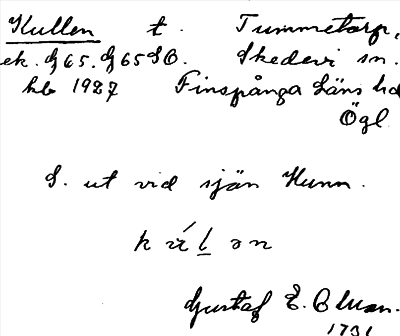 Kullen t. Tummetorp,
ek. G65. G65SO. Skedevi sn.
hb 1927 Finspånga läns hd
Ögl
S. ut vid sjön Hunn.
Gustaf E.